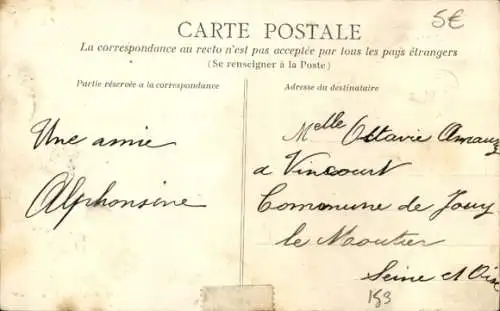 CARTE POSTALE
5€
La correspondance au recto n'est pas acceptée par tous les pays étrangers
(Se renseigner à la Poste)
Partie réservée a la correspondance
Adresse du destinataire
Une amie
Alphonsine
Melle Octavie
a Vincourt
Commune de Jouy
le Moutier
Seine et Oise